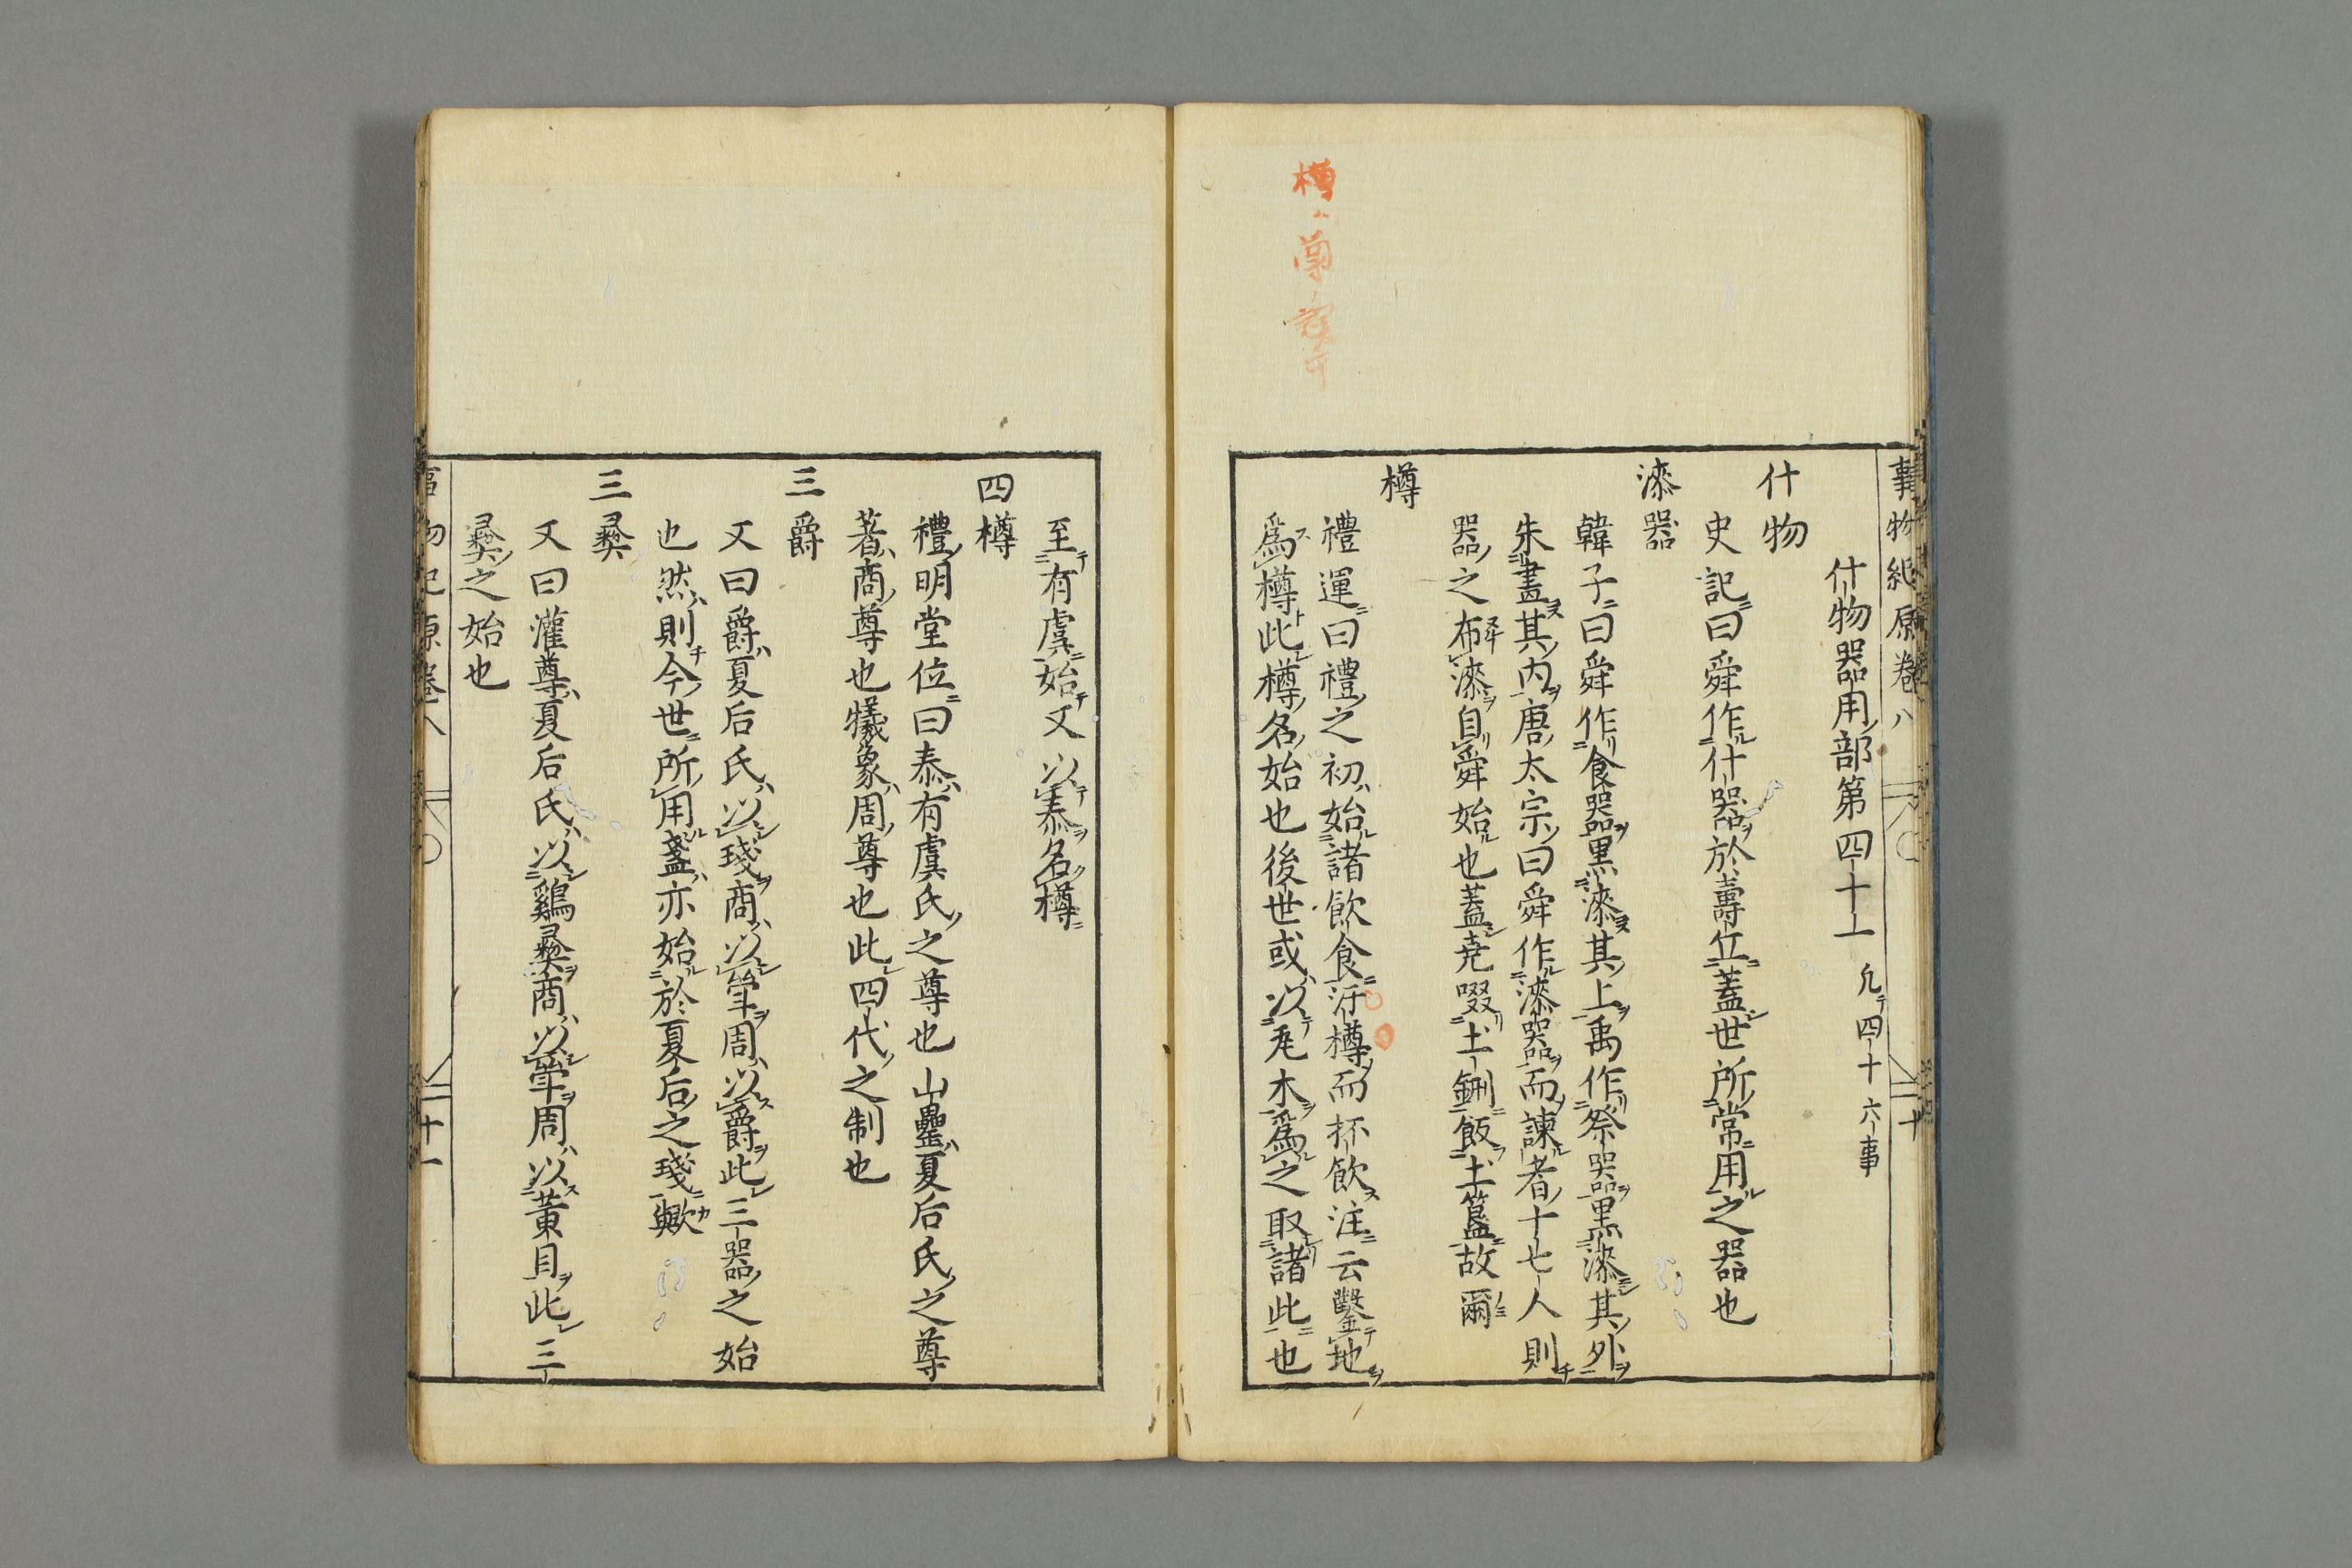 事物紀原卷八
十
什物器用部第四十一 凢四十六事
什物
史記曰舜作什器於壽丘蓋世所常用之器也
漆器
韓子曰舜作食器黒漆其上禹作祭器黒漆其外
朱畫其内唐太宗曰舜作漆器而諫者十七人則
器之布漆自舜始也蓋堯啜土鉶飯土簋故爾
樽
禮運曰禮之初始諸飲食汙樽而抔飲注云鑿地
爲樽此樽名始也後世或以瓦木爲之取諸此也
至有虞始又以泰名樽
四樽
禮明堂位曰泰有虞氏之尊也山罍夏后氏之尊
著商尊也犠象周尊也此四代之制也
三爵
又曰爵夏后氏以琖商以斚周以爵此三器之始
也然則今世所用盞亦始於夏后之琖歟
三彝
又曰灌尊夏后氏以鷄彝商以斚周以黄目此三
彝之始也
物紀原卷八
十一